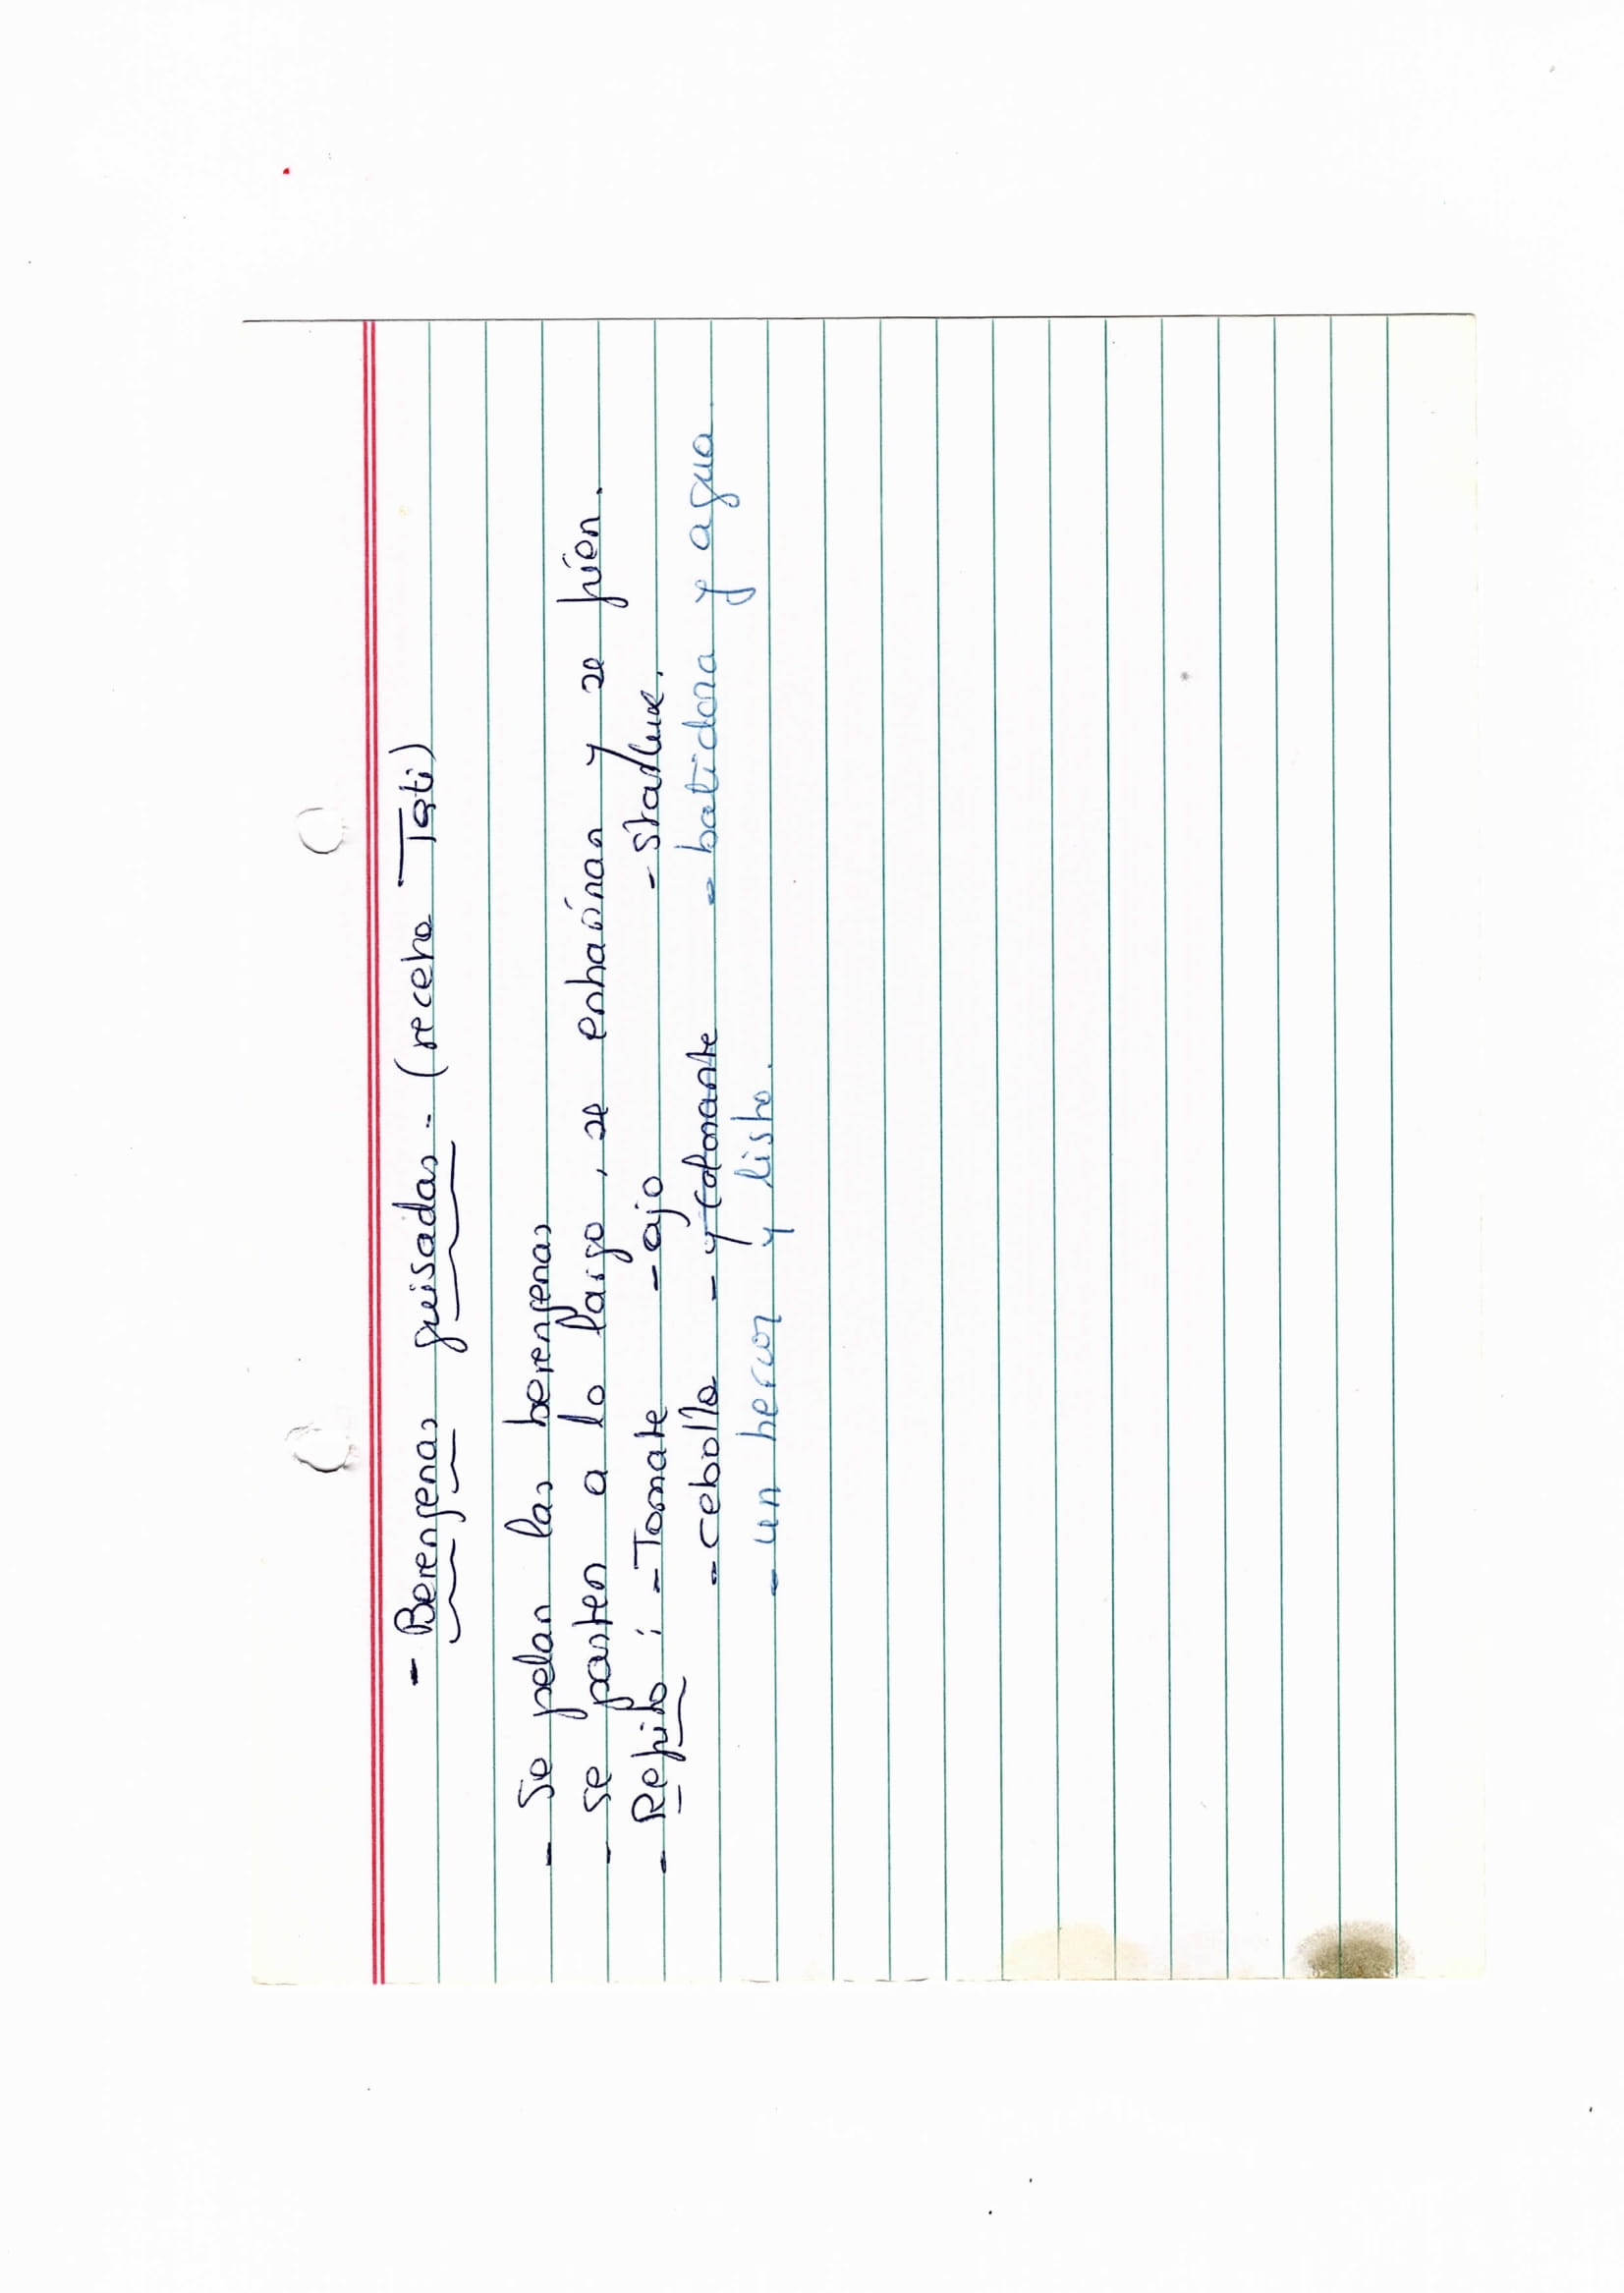 - Berengenas guisadas - (receta Tati)
- Se pelan las berengenas
- se parten a lo largo, se enharinan y se frien.
- Refrito : - Tomate - ajo -
- cebolla - y colorante - batidora y agua
- un hervor y listo.